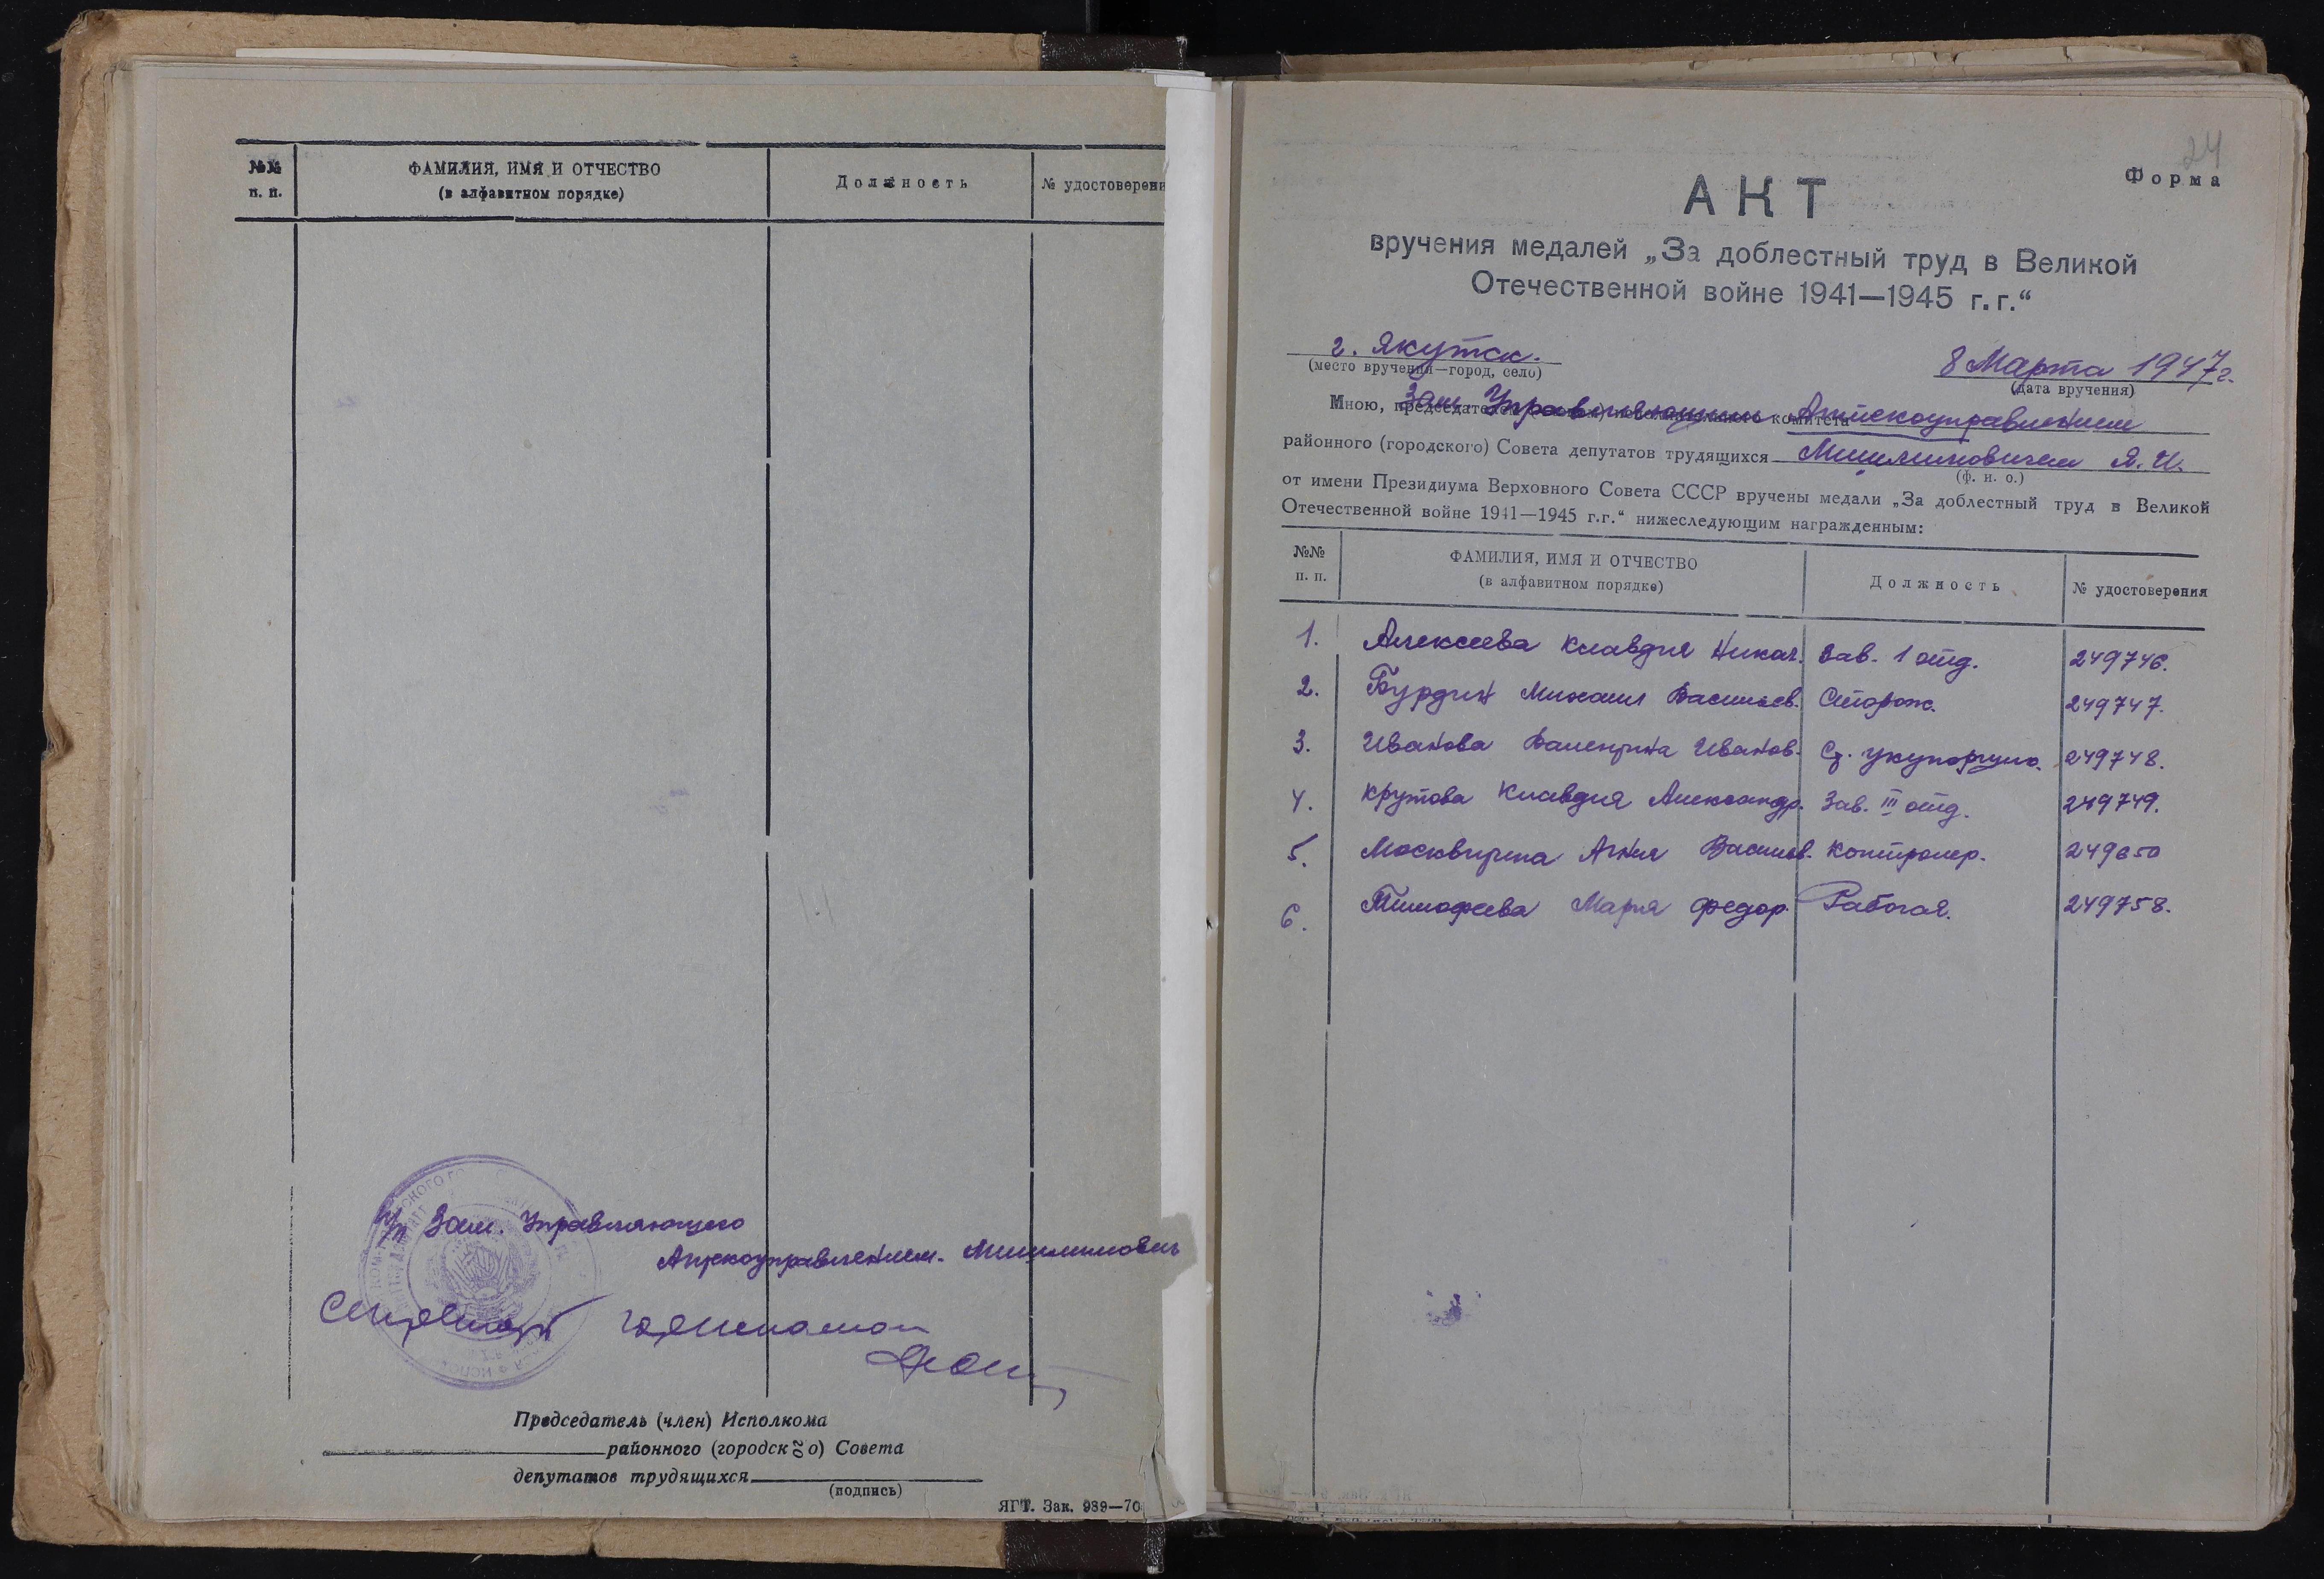 №№
п. п.
ФАМИЛИЯ, ИМЯ И ОТЧЕСТВО
(в алфавитном порядке)
Должность
№ удостоверени
И/п Зам. Управляющего
Аптекоуправлением.
Секретарь
Председатель (член) Исполкома
районного (городского) Совета
депутатов трудящихся
(подпись)
ЯГТ. Зак. 989—70
24
Форма
АКТ
вручения медалей „За доблестный труд в Великой
Отечественной войне 1941—1945 г.г.“
г. Якутск.
(место вручения—город, село)
8 Марта 1947 г.
(дата вручения)
Зам. Управляющим Аптекоуправлением
Мною, председателем комитета
районного (городского) Совета депутатов трудящихся Я. И.
(ф. и. о.)
от имени Президиума Верховного Совета СССР вручены медали „За доблестный труд в Великой
Отечественной войне 1941—1945 г.г.“ нижеследующим награжденным:
№№
п. п.
ФАМИЛИЯ, ИМЯ И ОТЧЕСТВО
(в алфавитном порядке)
Должность
№ удостоверения
1. Алексеева Клавдия Никол. Зав. 1 отд. 249746.
2. Бурдин Михаил Васильев. Сторож. 249747.
3. Иванова Валентина Иванов. Ст. укупорщиц. 249748.
4. Крутова Клавдия Александр. Зав. III отд. 249749.
5. Москвитина Агния Васильев. Контролер. 249650
6. Тимофеева Мария Федор. Рабочая. 249758.